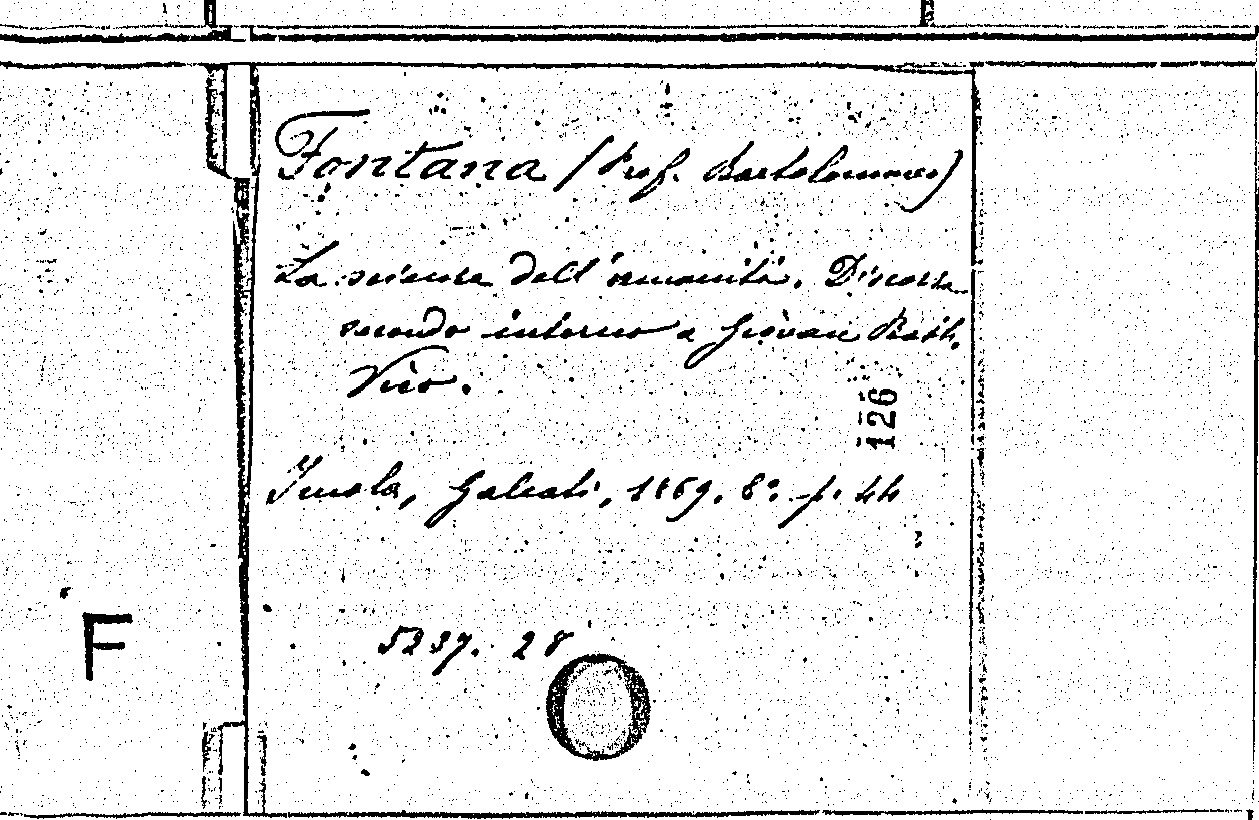 Fontana (Prof. Bartolomeo)
La scienza dell'umanità. Discorso
secondo intorno a Giovan Batt.
Vico.
126
Imola, Galeati, 1869. 8°. p. 44
F
5237. 28